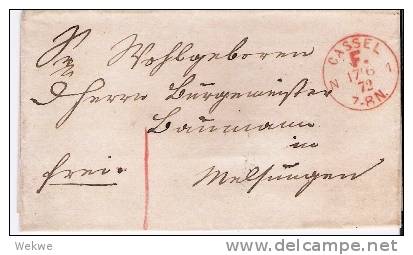 Sr Wohlgeboren
Herrn Burgemeister
Baumann
in
frei.
Melsungen
CASSEL
F.
17 6
72
7-8 N.
N 1
Wekwe
www.delcampe.net